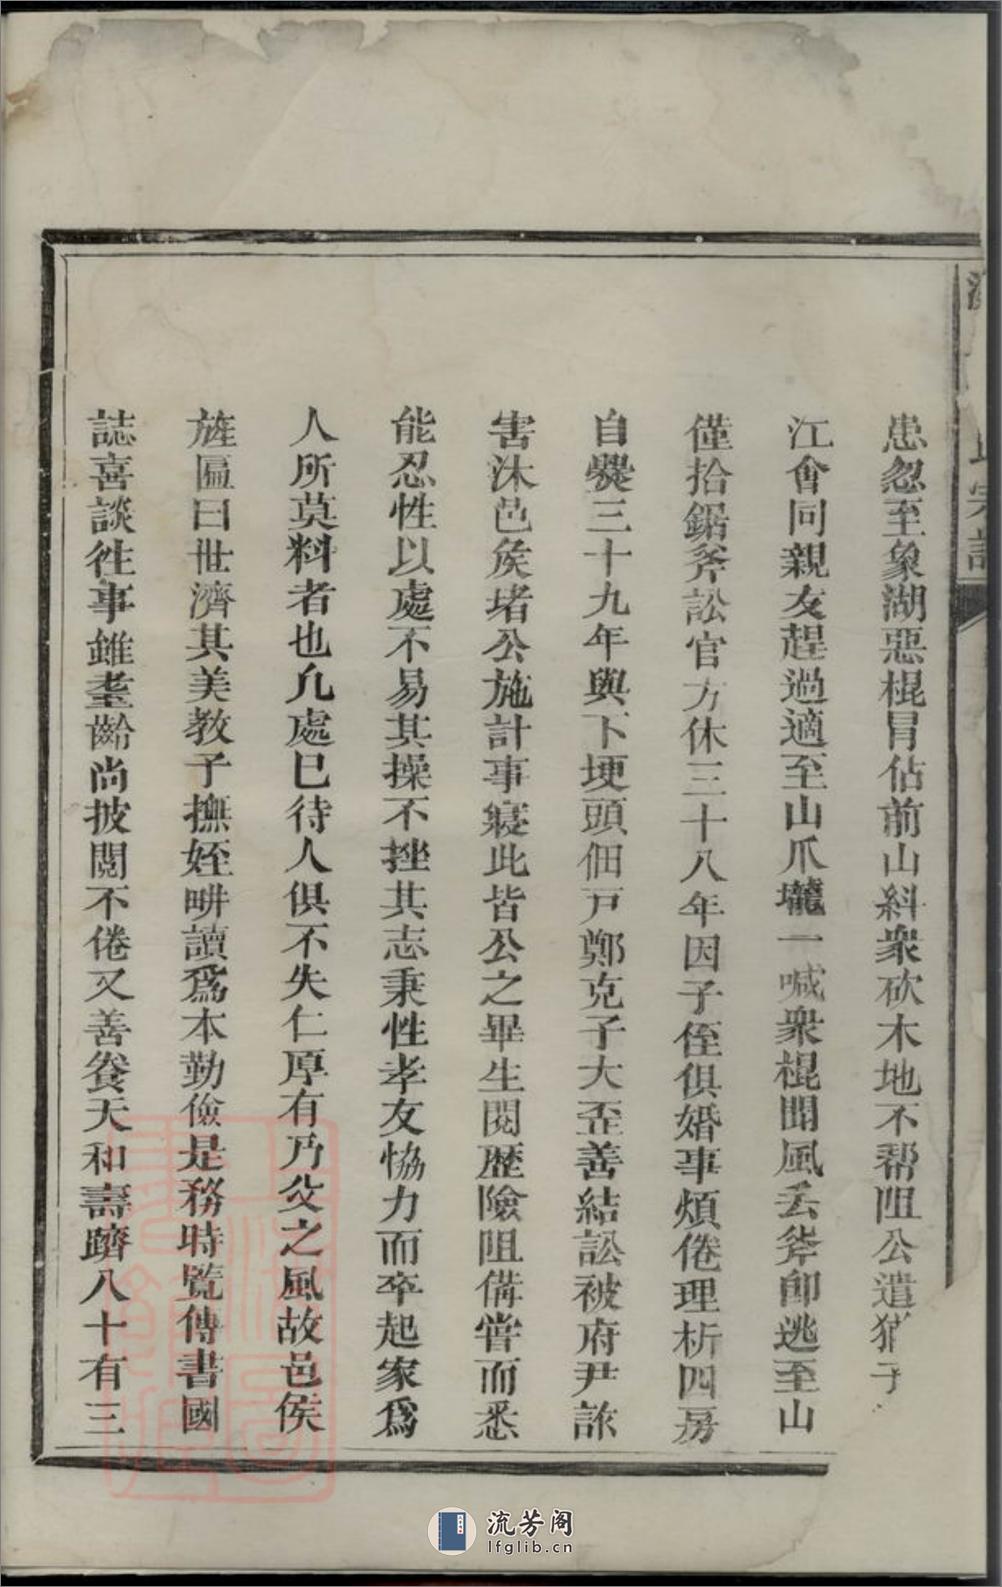 患忽至象湖惡棍冒佔前山糾衆砍木地不帮阻公遣猶子
江會同親友趕過適至山爪壠一喊衆棍聞風丢斧卽逃至山
僅拾鋸斧訟官方休三十八年因子侄俱婚事煩倦理析四房
自爨三十九年與下埂頭佃戸鄭克子大歪善結訟被府尹詠
害沐邑矦堵公施計事寢此皆公之畢生閱歷險阻備嘗而悉
能忍性以處不易其操不挫其志秉性孝友恊力而卒起家爲
人所莫料者也凢處巳待人俱不失仁厚有乃父之風故邑侯
旌匾曰世濟其美教子撫姪畊讀爲本勤儉是務時覽傳書國
誌喜談徃事雖耋齡尚披閱不倦又善養天和壽躋八十有三
宗譜
流芳阁
lfglib.cn